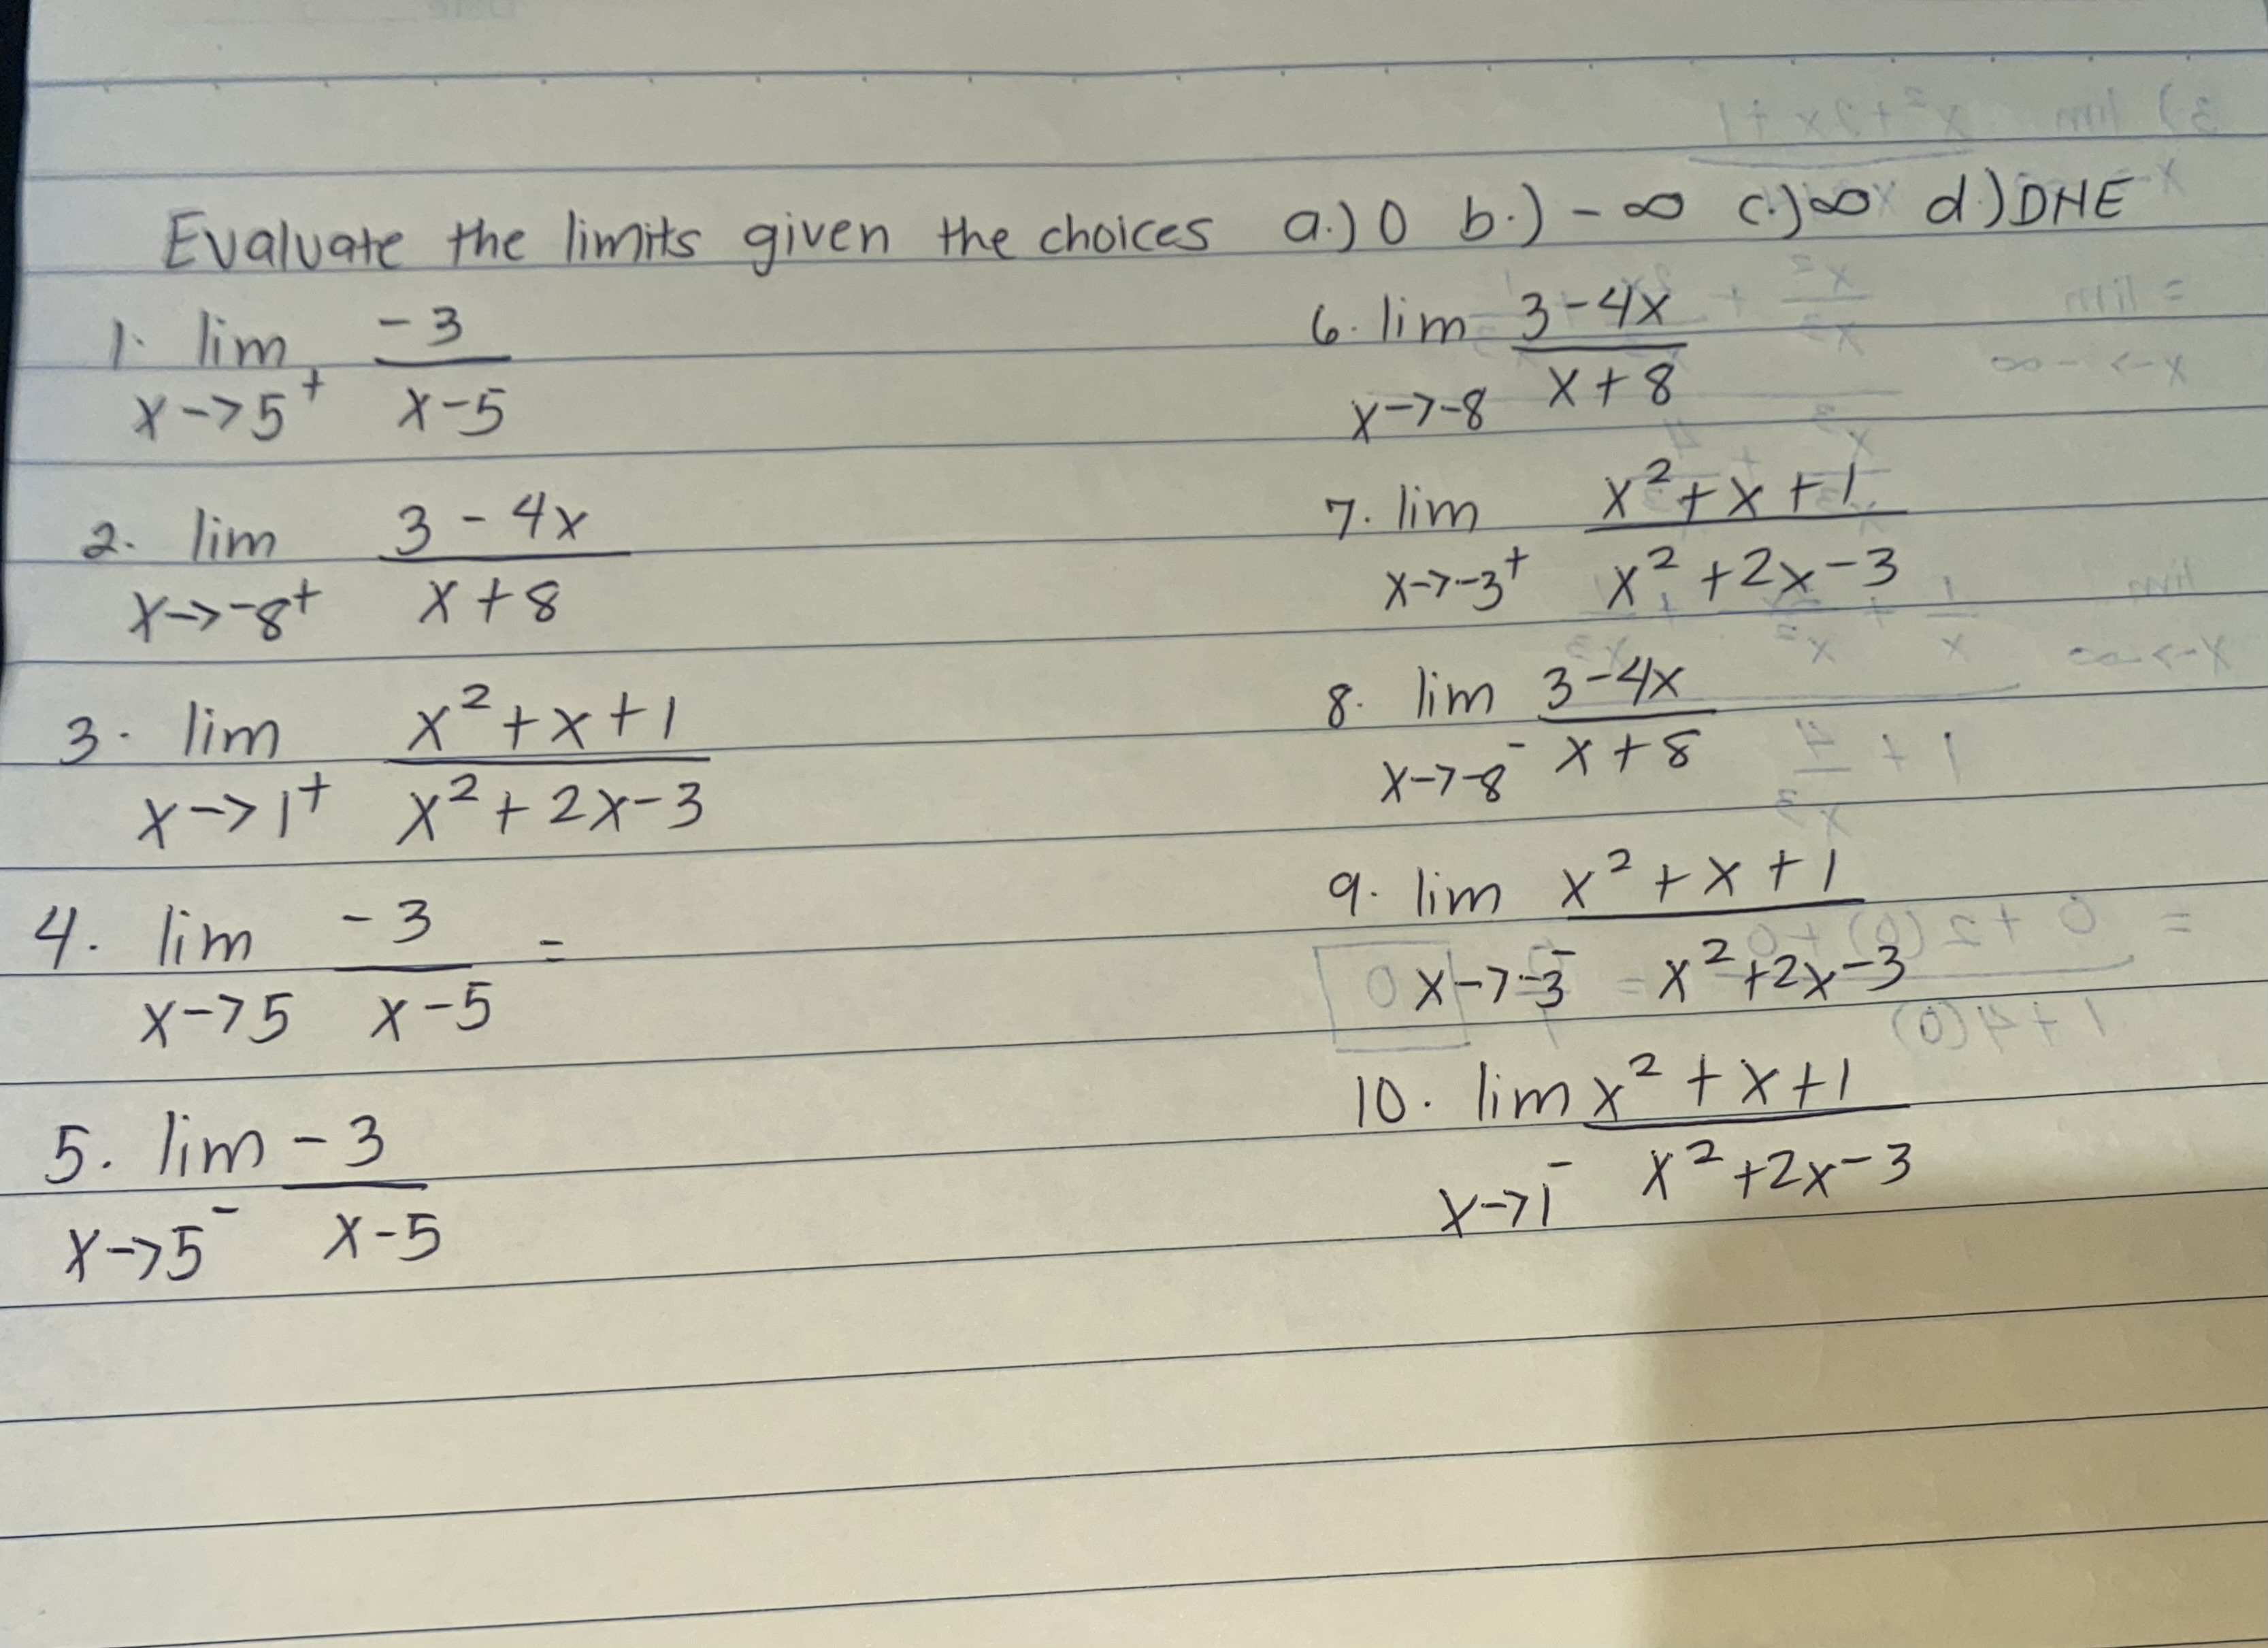 Evaluate the limits given the choices a.) 0 b.) -∞ c.) ∞ d.) DNE
1. lim -3
x->5⁺ x-5
2. lim 3-4x
x->-8⁺ x+8
3. lim x²+x+1
x->1⁺ x²+2x-3
4. lim -3 =
x->5 x-5
5. lim -3
x->5⁻ x-5
6. lim 3-4x
x->-8 x+8
7. lim x²+x+1
x->-3⁺ x²+2x-3
8. lim 3-4x
x->-8⁻ x+8
9. lim x²+x+1
x->-3⁻ x²+2x-3
10. lim x²+x+1
x->1⁻ x²+2x-3